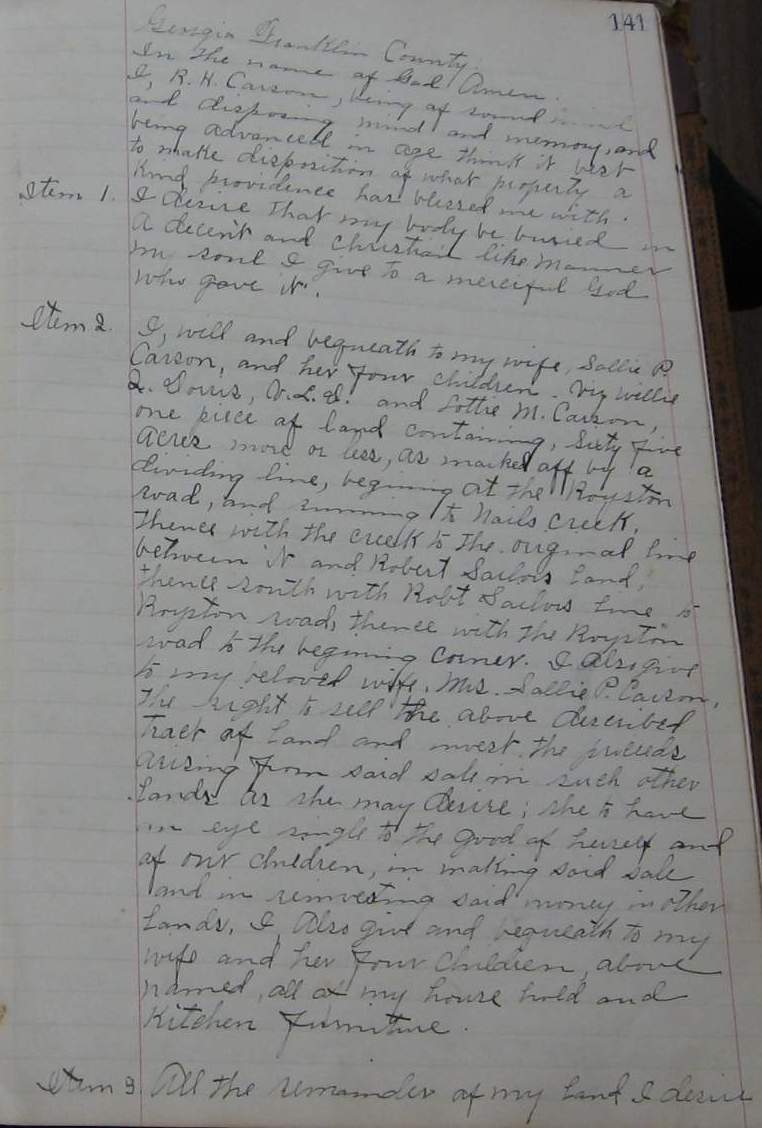 141
Georgia Franklin County.
In the name of God Amen.
I, R. H. Carson, being of sound mind
and disposing mind and memory, and
being advanced in age think it best
to make disposition of what property a
Kind providence has blessed me with.
Item 1. I desire that my body be buried in
a decent and Christian like manner
my soul I give to a merciful God
who gave it.
Item 2. I, will and bequeath to my wife, Sallie P.
Carson, and her four children. Viz Willie
L. and Lottie M. Carson,
one piece of land containing, Sixty five
Acres more or less, as marked off by a
dividing line, begining at the Royston
road, and running to Nails Creek,
thence with the creek to the original line
between it and Robert Sailors land,
thence south with Robt Sailors line to
Royston road, thence with the Royston
road to the begining corner. I Also give
to my beloved wife, Mrs. Sallie P. Carson,
the right to sell the above described
tract of land and invest the proceeds
arising from said sale in such other
Lands as she may desire; she to have
an eye single to the good of herself and
of our children, in making said sale
and in reinvesting said money in other
Lands, I, Also give and bequeath to my
wife and her four children, above
named, all of my house hold and
Kitchen furniture.
Item 3. All the remainder of my land I desire